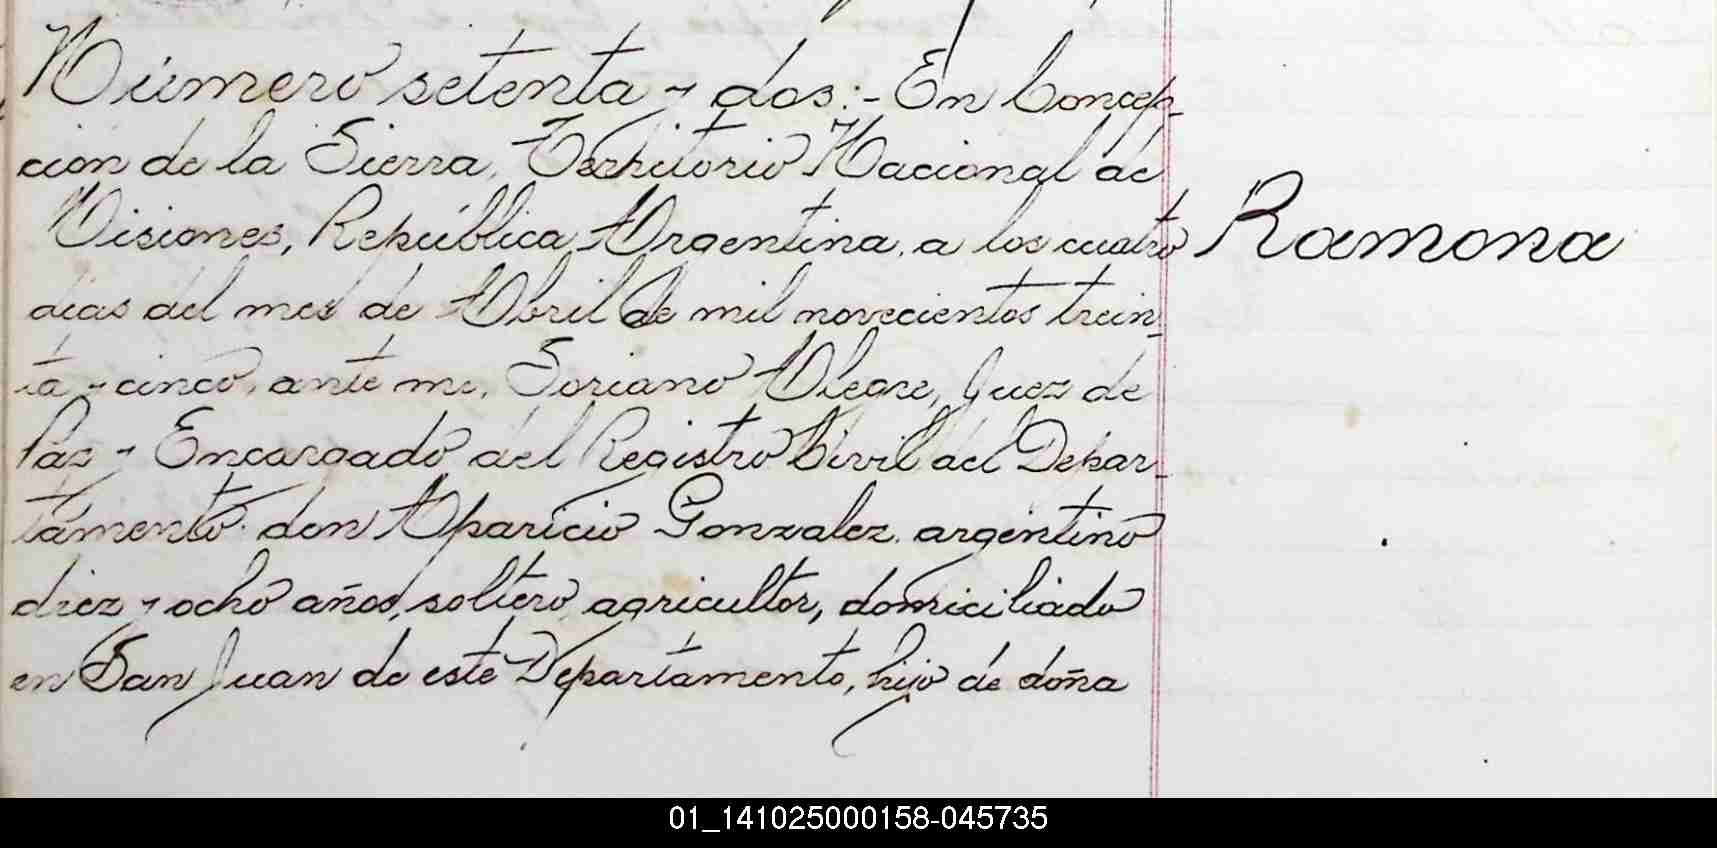 Número setenta y dos:- En Concep-
cion de la Sierra, Territorio Nacional de
Misiones, República Argentina, a los cuatro
Ramona
dias del mes de Abril de mil novecientos trein-
ta y cinco, ante mi, Soriano Alegre, Juez de
Paz y Encargado del Registro Civil del Depar-
tamento. don Aparicio Gonzalez. argentino
diez y ocho años, soltero, agricultor, domiciliado
en San Juan de este Departamento, hijo de doña
01_141025000158-045735